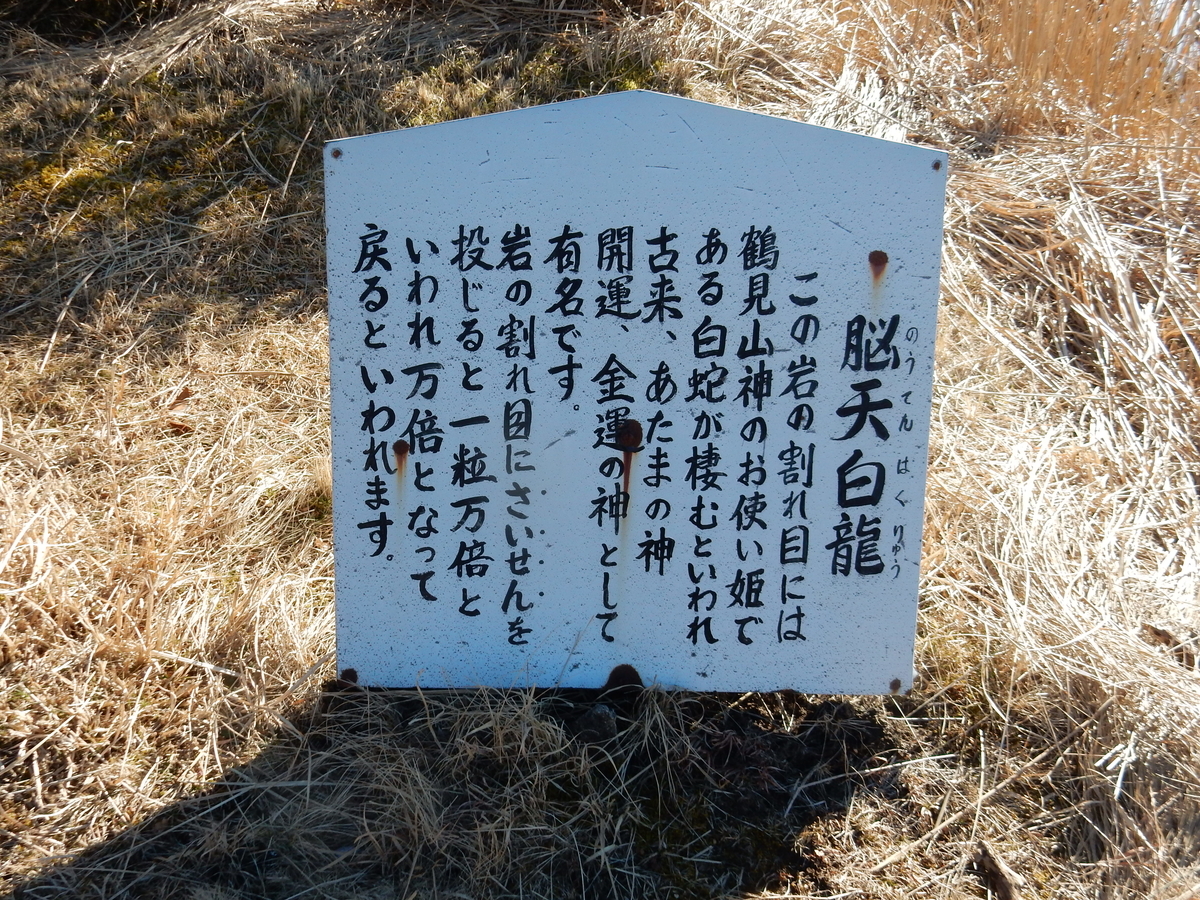 脳天白龍
のうてんはくりゅう
この岩の割れ目には
鶴見山神のお使い姫で
ある白蛇が棲むといわれ
古来、あたまの神
開運、金運の神として
有名です。
岩の割れ目にさいせんを
投じると一粒万倍と
いわれ万倍となって
戻るといわれます。